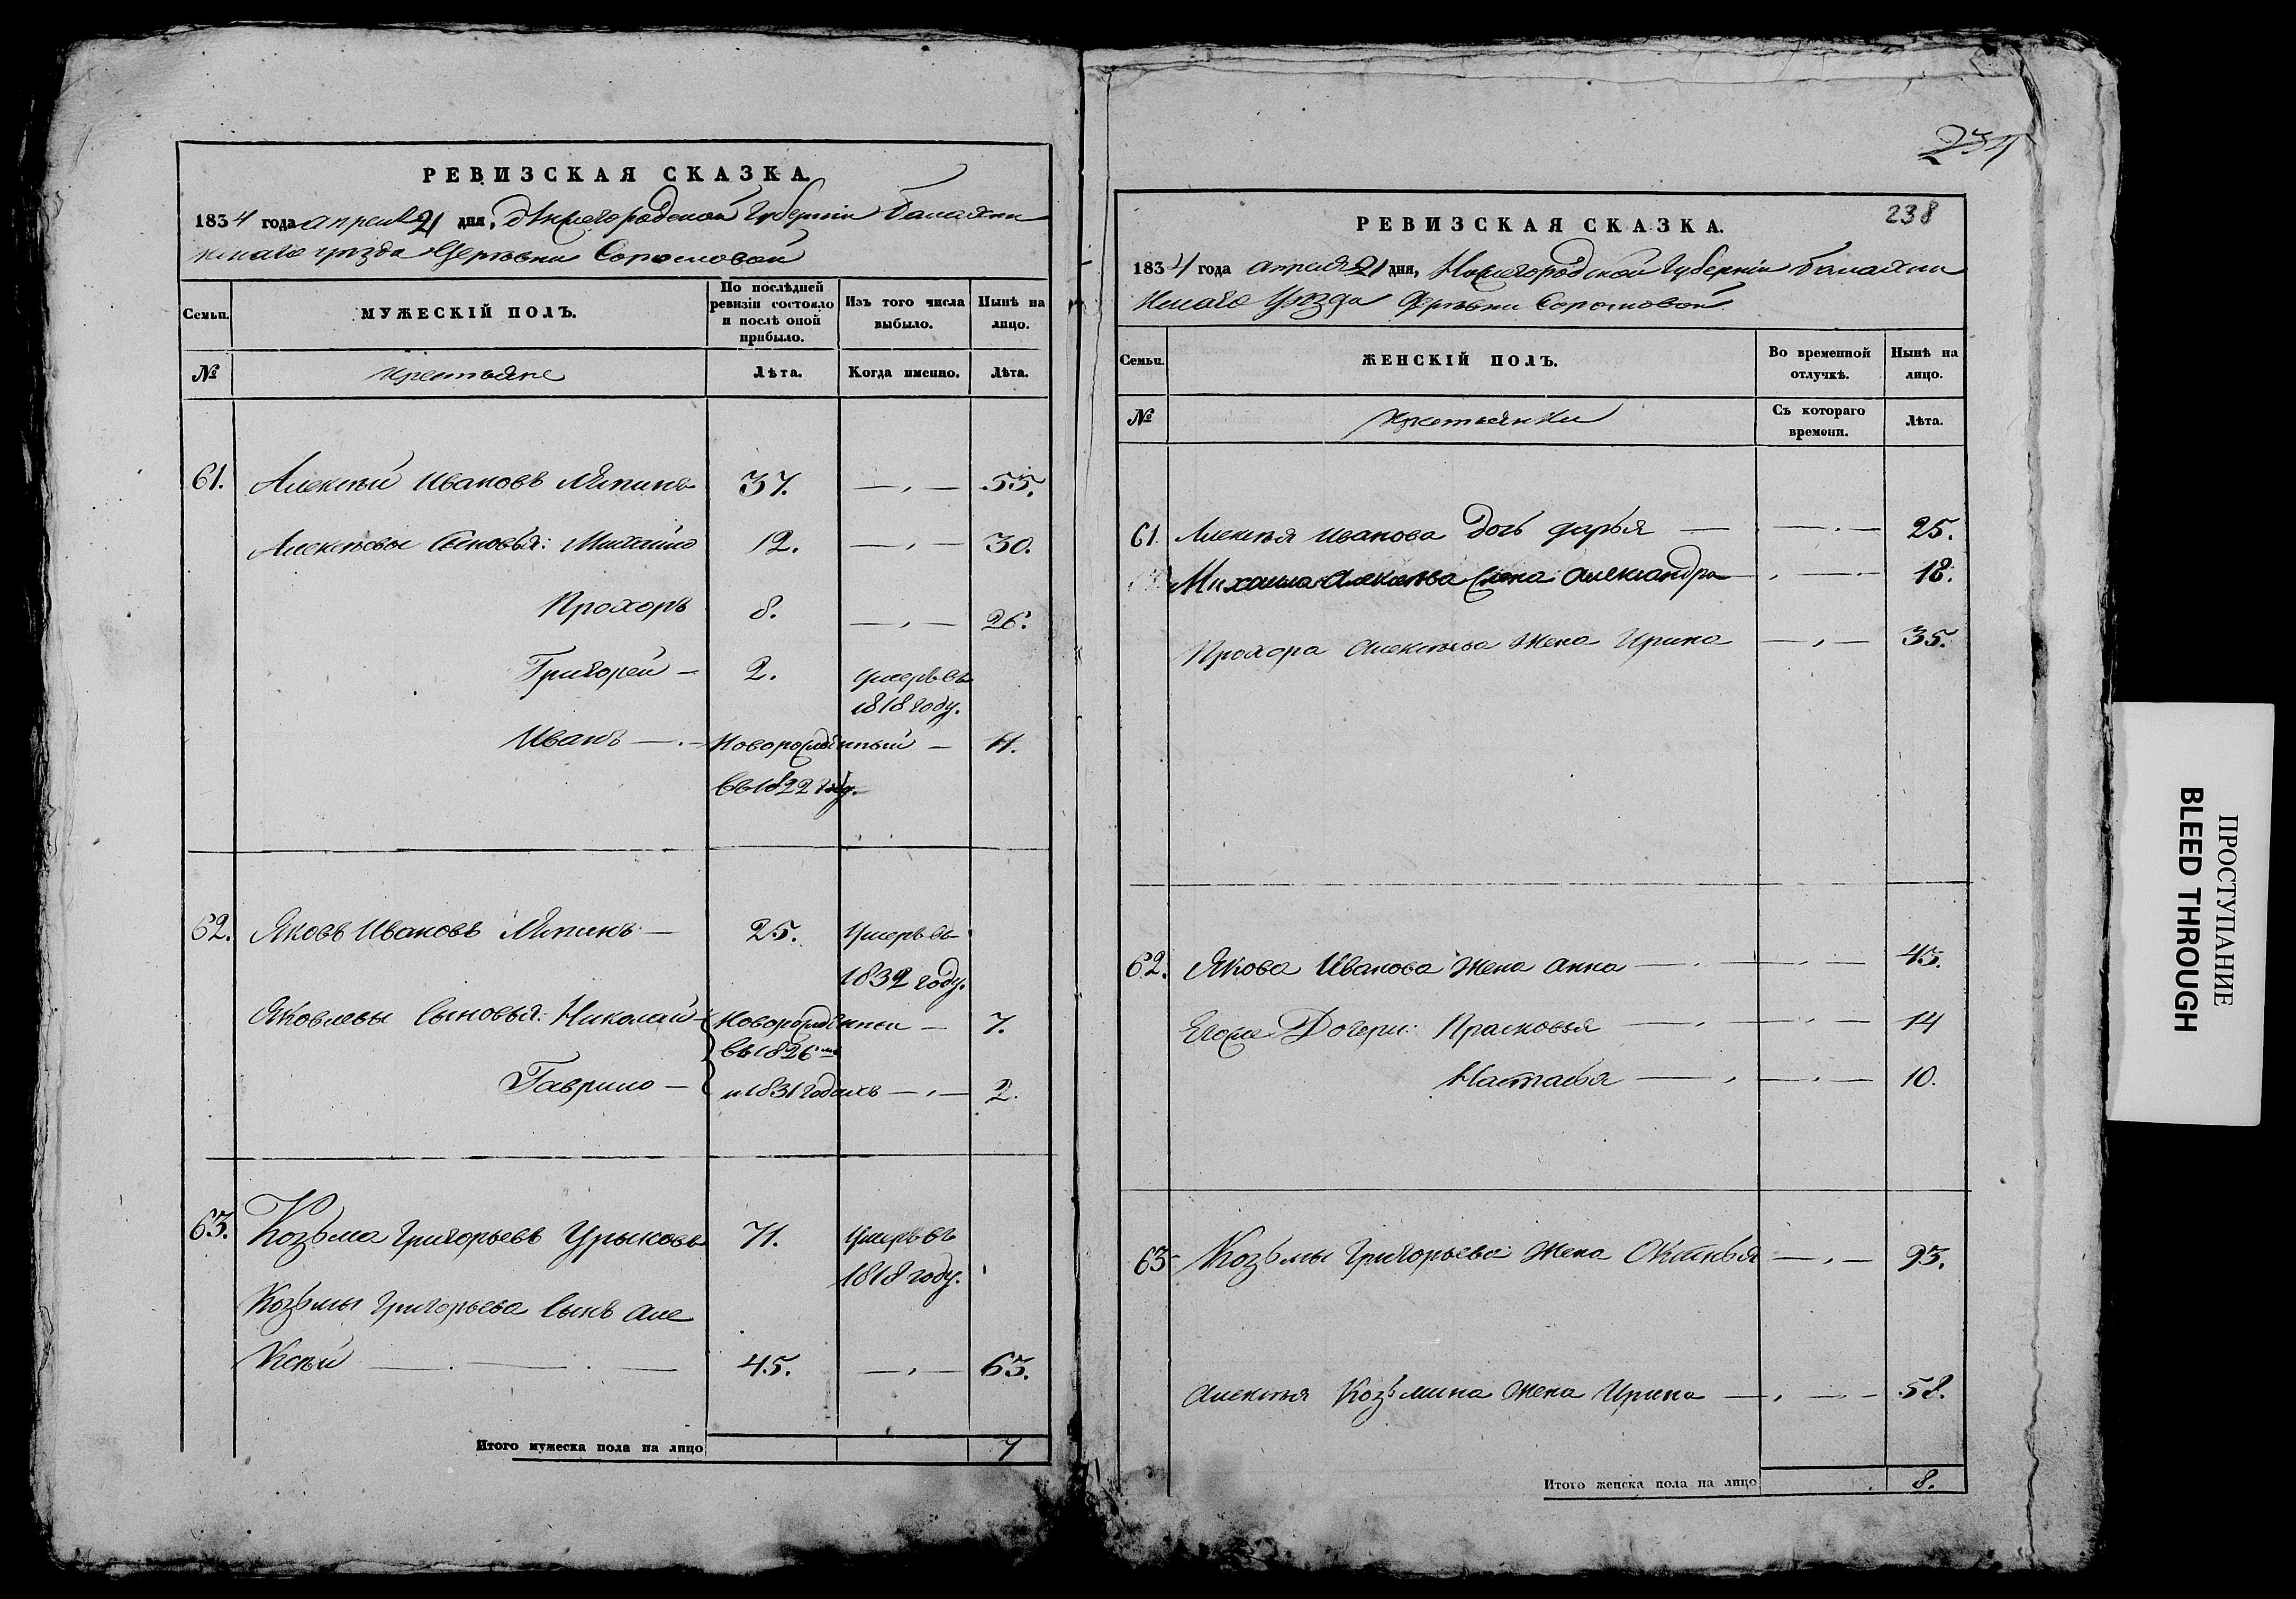 РЕВИЗСКАЯ СКАЗКА.
1834 года апреля 21 дня, Нижегородской Губернiи Балахнин
скаго уѣзда Деревни Сормовой
Семьи.
МУЖЕСКIЙ ПОЛЪ.
По послѣдней
ревизiи состояло
и послѣ оной
прибыло.
Изъ того числа
выбыло.
Нынѣ на
лицо.
№
крестьяне
Лѣта.
Когда именно.
Лѣта.
61. Алексѣй Ивановъ 37. 55.
Алексѣевы Сыновья: Михайло 12. 30.
Прохоръ 8. 26.
Григорей 2. умеръ въ
1818 году.
Иванъ Новорожденный 11.
въ 1822 году.
62. Яковъ Ивановъ 25. Умеръ въ
1832 году.
Яковлевы Сыновья: Николай Новорожденныи 7.
въ 1826мъ
Гаврило и 1831 годахъ 2.
63. Козьма Григорьевъ Урыковъ 71. Умеръ въ
1818 году.
Козьмы Григорьева Сынъ Але
ксѣй 45. 63.
Итого мужеска пола на лицо 7
239
238
РЕВИЗСКАЯ СКАЗКА.
1834 года апреля 21 дня, Нижегородской Губернiи Балахнин
скаго Уѣзда Деревни Сормовой
Семьи.
ЖЕНСКIЙ ПОЛЪ.
Во временной
отлучкѣ.
Нынѣ на
лицо.
№
крестьянки
Съ котораго
времени.
Лѣта.
61. Алексѣя Иванова дочь дарья 25.
Михаила Алексѣева жена Александра 18.
Прохора Алексѣева жена Ирина 35.
62. Якова Иванова жена анна 43.
Егоже Дочери: Прасковья 14
Наталья 10.
63 Козьмы Григорьева жена 93.
Алексѣя Козьмина жена Ирина 58.
Итого женска пола на лицо 8.
ПРОСТУПАНИЕ
BLEED THROUGH